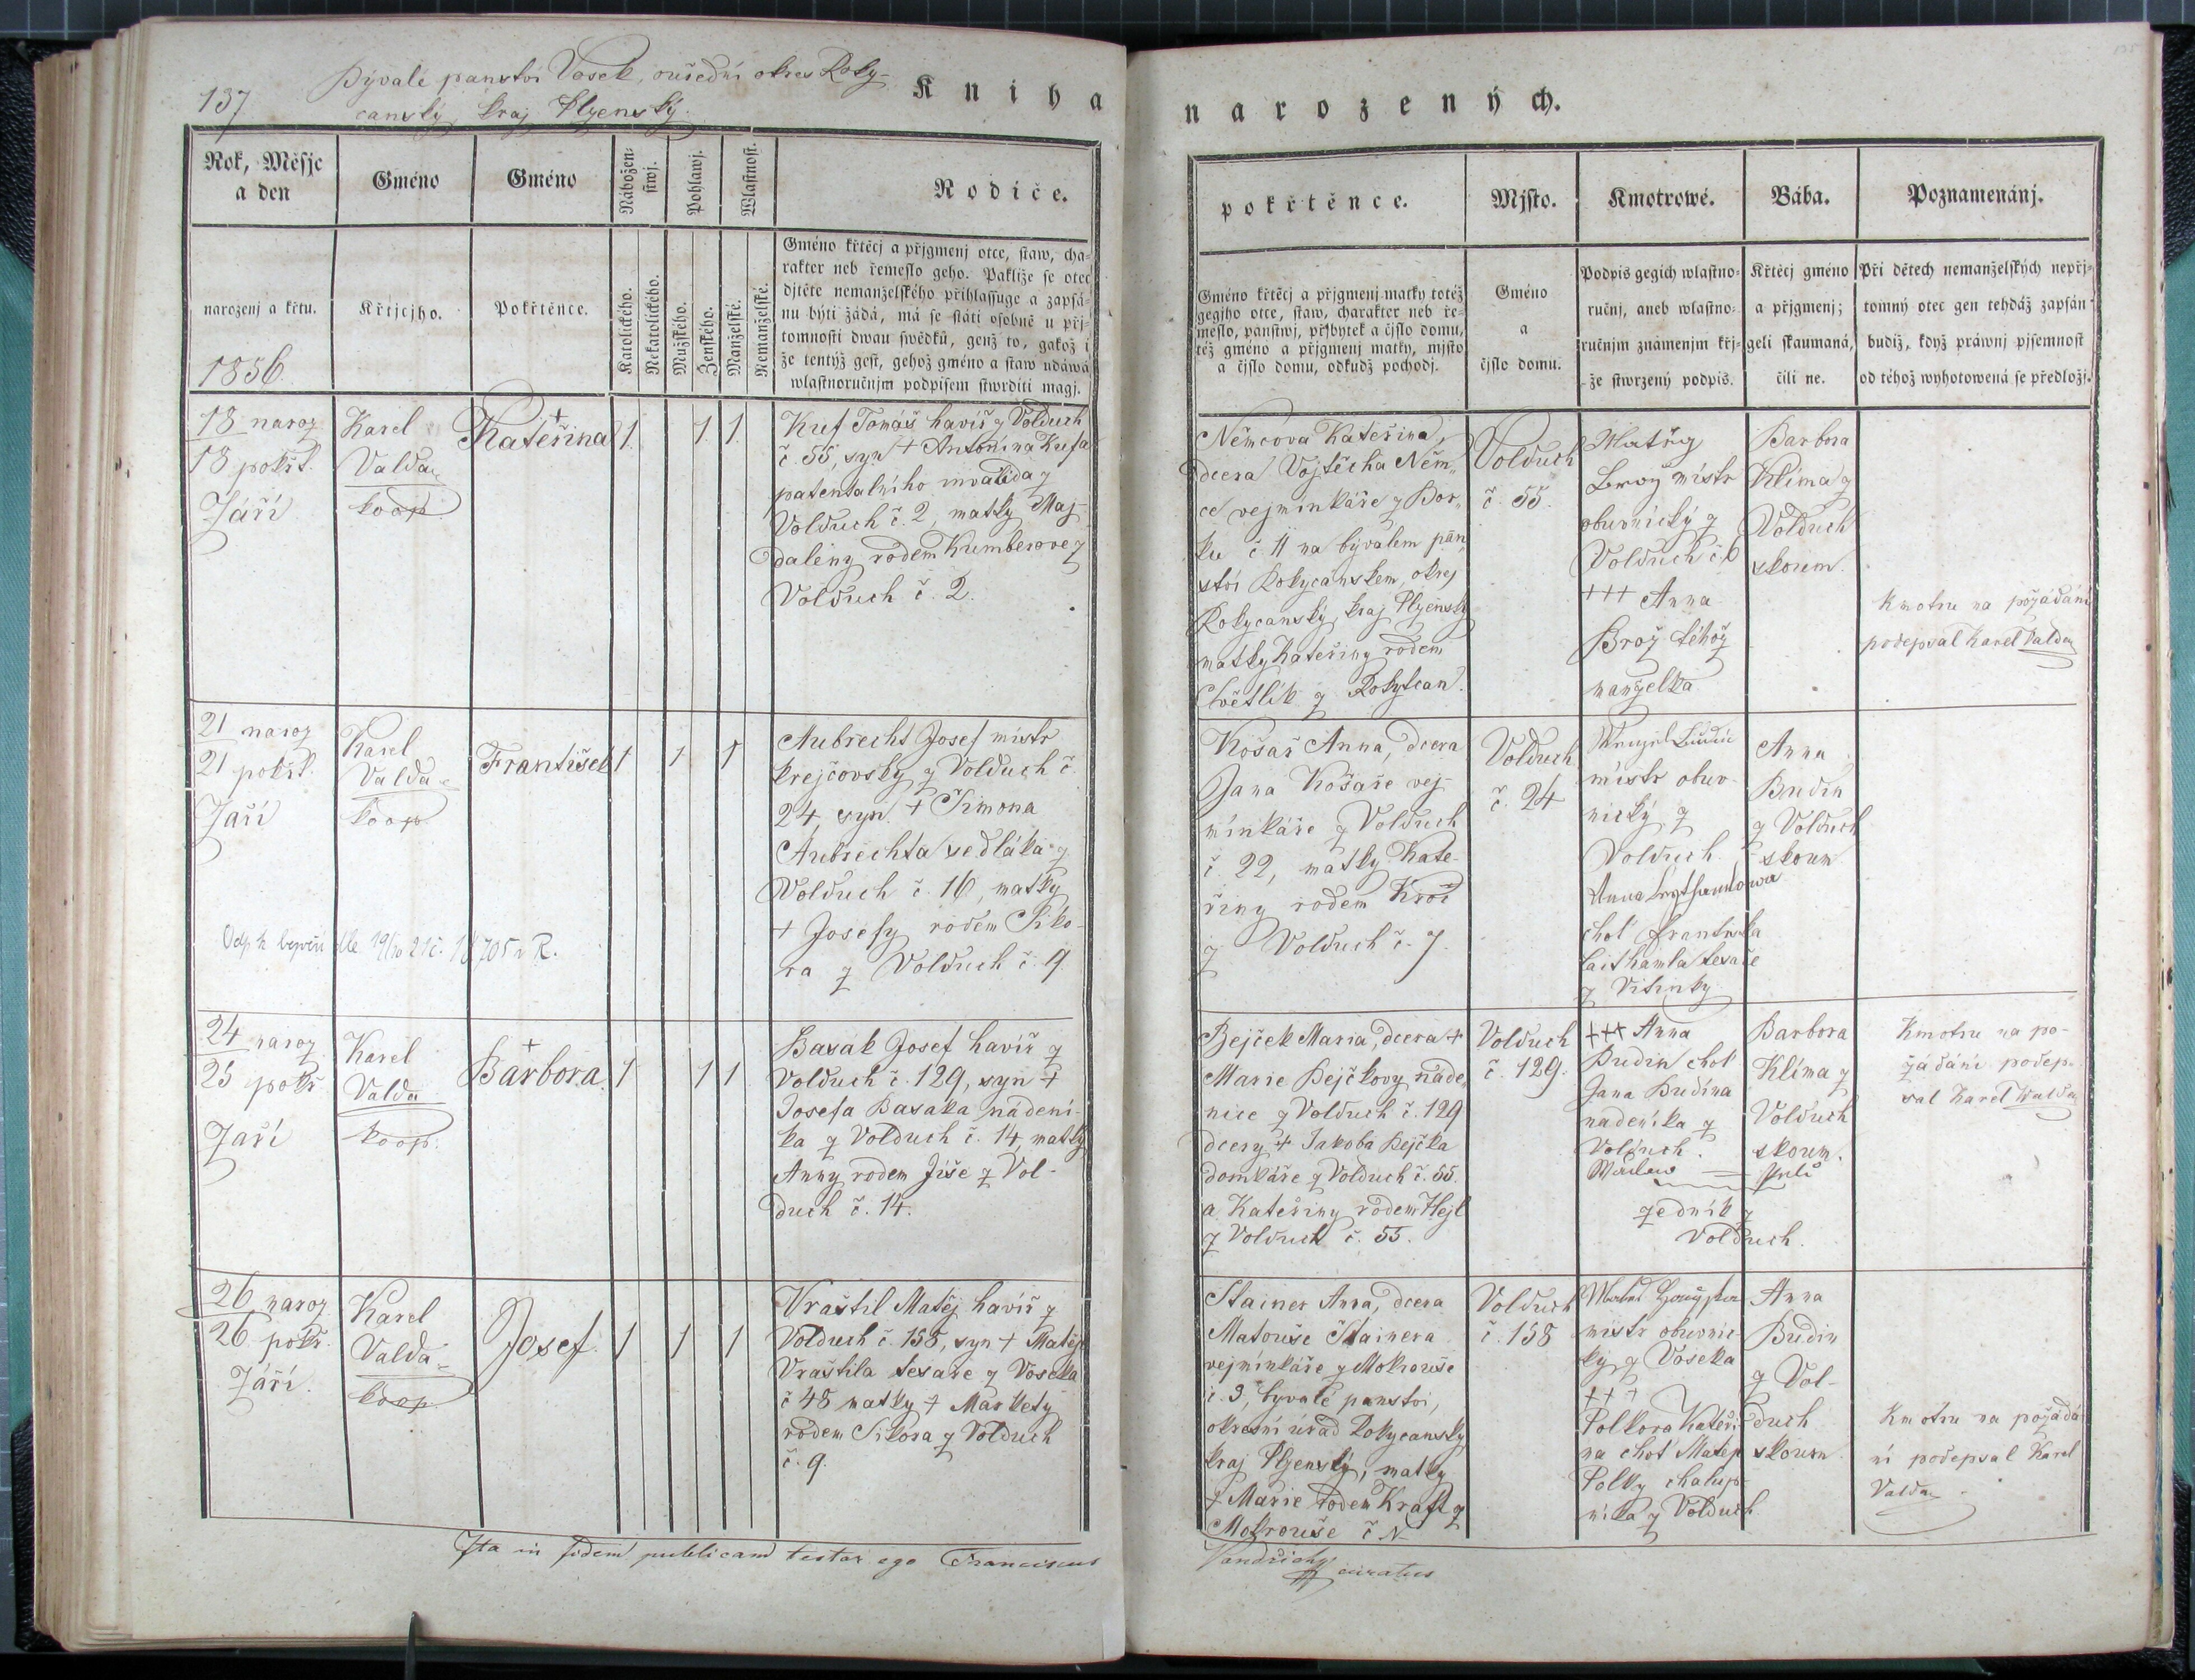 137
Bývalé panství Vosek, ouřední okres Roky-
canský, kraj Plzenský.
Kniha narozených.
Rok, Měsjc
a den
Gméno
Gméno
Nábožen-
stwj.
Pohlawj.
Wlastnost.
Rodiče.
narozenj a křtu.
1856.
Křtjcjho.
Pokřtěnce.
Katolického.
Nekatolického.
Mužského.
Ženského.
Manželské.
Nemanželské.
Gméno křtěcj a přjgmenj otce, staw, cha-
rakter neb řemeslo geho. Pakliže se otec
djtěte nemanželského přihlassuge a zapsá-
nu býti žádá, má se státi osobně u přj-
tomnosti dwau swědků, genž to, gakož i
že tentýž gest, gehož gméno a staw udáwá
wlastnoručnjm podpisem stwrditi magj.
18 naroz
18 pokřt.
Září
Karel
Valda
koop
+
Kateřina
1
1
1
Kuf Tomáš havíř z Volduch
č. 55, syn + Antonína Kufa
patentalního invalida z
Volduch č. 2, matky Maj-
daleny rodem Kumberove z
Volduch č. 2.
21 naroz
21 pokřt.
Září
Karel
Valda
koop
František
1
1
1
Aubrecht Josef mistr
krejčovský z Volduch č.
24, syn + Šimona
Aubrechta sedláka z
Volduch č. 16, matky
+ Josefy rodem Siko-
ra z Volduch č. 9
24 naroz
25 pokř.
Září
Karel
Valda
koop.
+
Barbora.
1
1
1
Basak Josef havíř z
Volduch č. 129, syn +
Josefa Basaka nádení-
ka z Volduch č. 14, matky
Anny rodem Jíše z Vol-
duch č. 14.
26 naroz
26 pokř.
Září.
Karel
Valda
koop
Josef.
1
1
1
Vraštil Matěj havíř z
Volduch č. 158, syn + Matěje
Vraštila tesaře z Voseka
č 48 matky + Markety
rodem Sikora z Volduch
č. 9.
Ita in fidem publicam testor ego Franciscus
pokřtěnce.
Mjsto.
Kmotrowé.
Bába.
Poznamenánj.
Gméno křtěcj a přjgmenj matky totéž
gegjho otce, staw, charakter neb ře-
meslo, panstwj, přjbytek a čjslo domu,
též gméno a přjgmenj matky, mjsto
a čjslo domu, odkudž pochodj.
Gméno
a
čjslo domu.
Podpis gegich wlastno-
ručnj, aneb wlastno-
ručnjm znamenjm křj-
že stwrzený podpis.
Křtěcj gméno
a přjgmenj;
geli skaumaná,
čili ne.
Při dětech nemanželských nepřj-
tomný otec gen tehdáž zapsán
budiž, když práwnj pjsemnost
od téhož wyhotowená se předložj.
Němcova Kateřina,
dcera Vojtěcha Něm-
ce vejminkáře z Bor-
ku č. 11 na bývalem pán
ství Rokycanskem, okres
Rokycanský, kraj Plzenský
matky Kateřiny rodem
Chvětlík z Rokytcan.
Volduch
č. 55.
Matěj
Brož mistr
obuvnický z
Volduch č. 6
+++ Anna
Brož téhož
manželka
Barbora
Klíma z
Volduch
skoum.
Kmotru na požádání
podepsal Karel Valda
Košař Anna, dcera
Jana Košaře vej-
mínkáře z Volduch
č. 22, matky Kate-
řiny rodem Kroč
z Volduch č. 7.
Volduch
č. 24
mistr obuv-
nický z
Volduch
Anna
choť Františka
Laithamla tesaře
z Vitinky
Anna
Budín
z Volduch
skoum
Bejček Maria, dcera +
Marie Bejčkovy náde-
nice z Volduch č. 129
dcery + Jakoba Bejčka
domkáře z Volduch č. 55.
a Kateřiny rodem Hejl
z Volduch č. 55.
Volduch
č. 129.
+++ Anna
Budín choť
Jana Budína
nadeníka z
Volduch.
zedník z
Volduch.
Barbora
Klíma z
Volduch
skoum.
Kmotru na po-
žádání podep-
sal Karel Valda
Stainer Anna, dcera
Matouše Stainera
vejminkáře z Mokrouše
č. 3, byvalé panství,
okresní úřad Rokycanský
kraj Plzenský, matky
+ Marie rodem Kraft z
Mokrouše č. N
Volduch
č. 158
mistr obuvnic-
ký z Voseka
+++
Polkova Kateři-
na choť Matěje
Polky chalup-
níka z Volduch
Anna
Budín
z Vol-
duch
skoum
Kmotru na požádá
ní podepsal Karel
Valda
Vandřichy
curatus